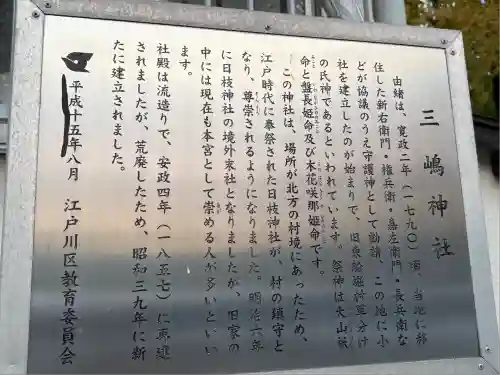 三嶋神社
由緒は、寛政二年(一七九〇)頃、当地に移
住した新右衛門・権兵衛・嘉左衛門・長兵衛な
どが協議のうえ守護神として勧請、この地に小
社を建立したのが始まりで、旧東船堀村草分け
の氏神であるといわれています。祭神は大山祇
命と盤長姫命及び木花咲耶姫命です。
この神社は、場所が北方の村境にあったため、
江戸時代に奉祭された日枝神社が、村の鎮守と
なり、尊崇されるようになりました。明治六年
に日枝神社の境外末社となりましたが、旧家の
中には現在も本宮として崇める人が多いといい
ます。
社殿は流造りで、安政四年(一八五七)に再建
されましたが、荒廃したため、昭和三九年に新
たに建立されました。
平成十五年八月 江戸川区教育委員会